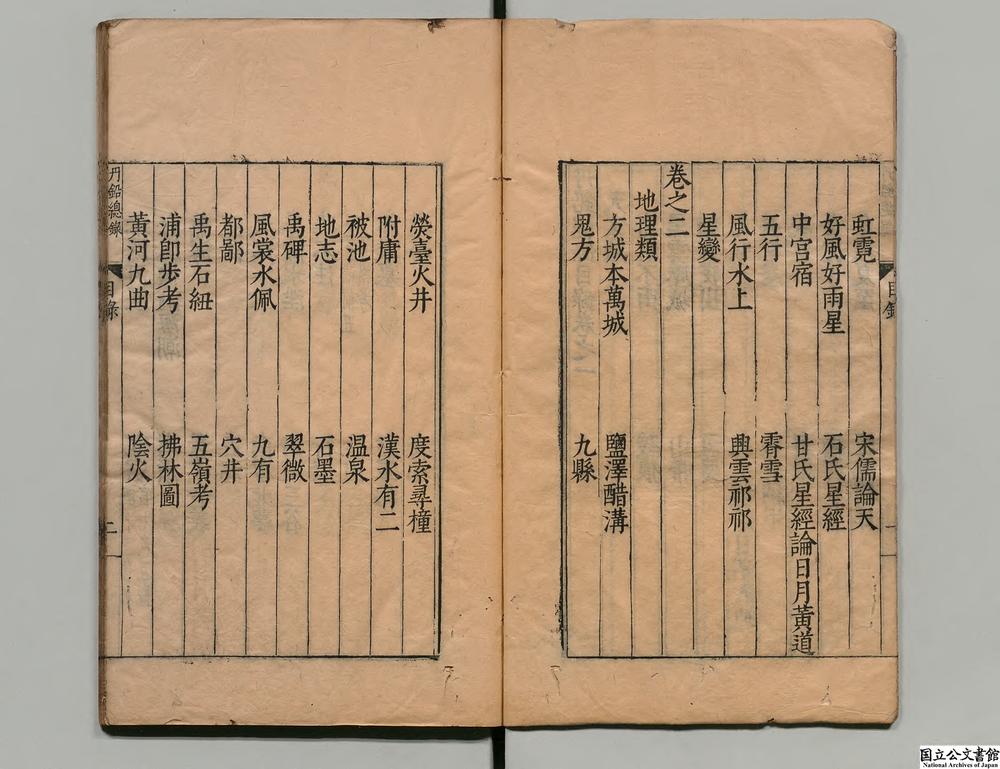 虹霓 宋儒論天
好風好雨星 石氏星經
中宮宿 甘氏星經論日月黃道
五行 霄雪
風行水上 興雲祁祁
星變
卷之二
地理類
方城本萬城 鹽澤醋溝
鬼方 九縣
目錄
熒臺火井 度索尋橦
附庸 漢水有二
被池 温泉
地志 石墨
禹碑 翠微
風裳水佩 九有
都鄙 穴井
禹生石紐 五嶺考
浦卽步考 拂林圖
黃河九曲 陰火
丹鉛總錄 目錄 二
国立公文書館
National Archives of Japan